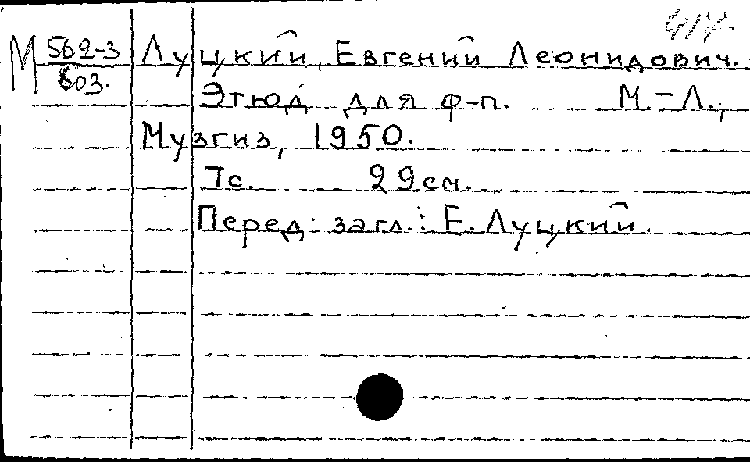 М 562-3/603.
Луцкий, Евгений Леонидович.
Этюд для ф-п. М.-Л.,
Музгиз, 1950.
7с. 29см.
Перед. загл.: Е. Луцкий.